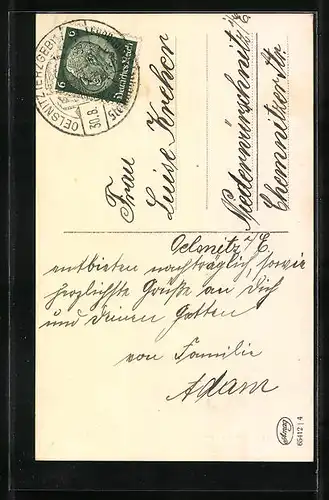 OELSNITZ (ERZGEB)
30.8.
6 Deutsches Reich 6
Frau
Luise Kreher
Niederwürschnitz i/E
Chemnitzer Str.
Oelsnitz i/E.
entbieten nachträglich, sowie
herzlichste Grüße an Dich
und deinen Gatten
von Familie
Adam
65412 | 4